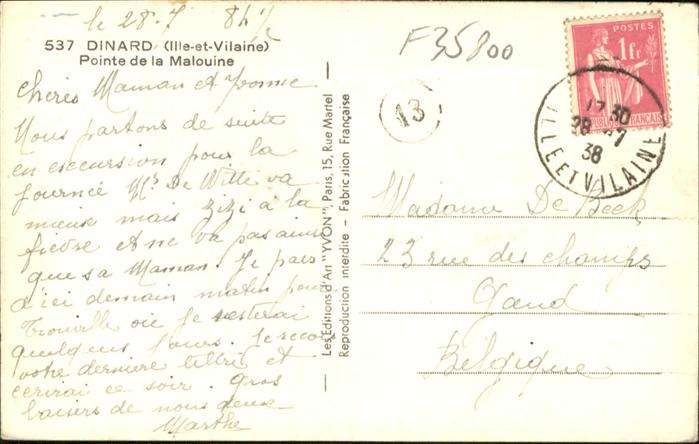 le 28.7 8h½
537 DINARD (Ille-et-Vilaine)
Pointe de la Malouine
Chères Maman et Yvonne
Nous partons de suite
en excursion pour la
journée Mr De Wille va
mieux mais zizi a la
fièvre et ne va pas ainsi
que sa Maman. Je pars
d'ici demain matin pour
Trouville où je resterai
quelques jours. Je reçois
votre dernière lettre et
écrirai ce soir. Gros
baisers de nous deux
Marthe
Les Editions d'Art "YVON", Paris, 15, Rue Martel
Reproduction interdite - Fabrication Française
F35800
13
POSTES
1F
FRANÇAISE
17 30
28 - 7
38
ILLE ET VILAINE
Madame De Beck
23 rue des champs
Gand
Belgique